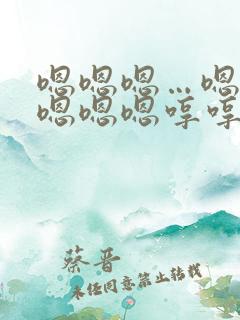 嗯嗯嗯…嗯
嗯嗯嗯哼哼
蔡晋
未经同意禁止转载